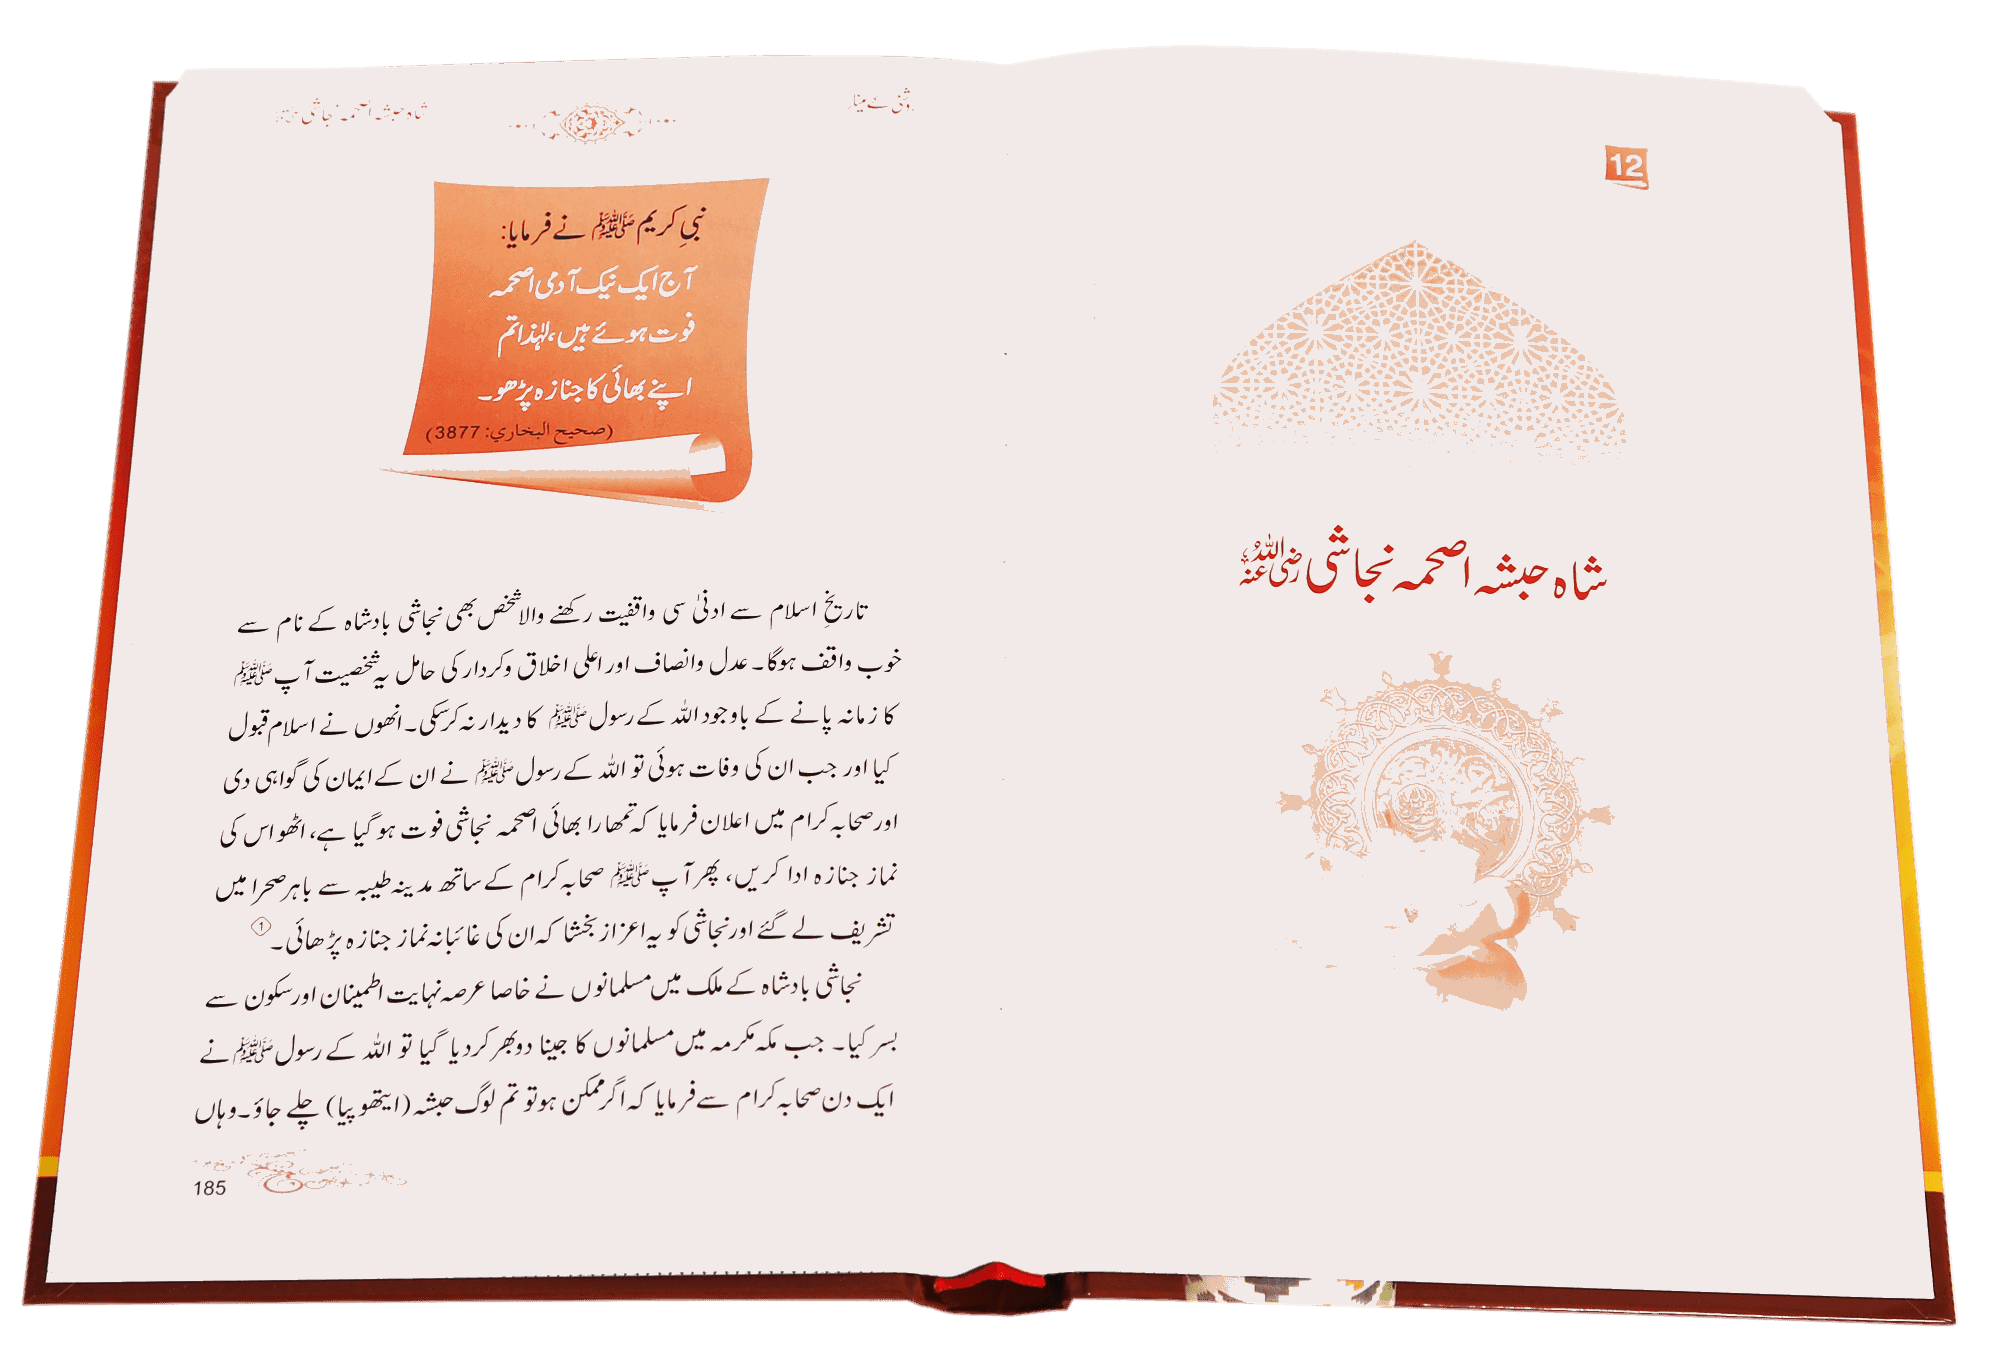 12
شاہ حبشہ اصحمہ نجاشی رضی اللہ عنہ
روشنی کے مینار
شاہ حبشہ اصحمہ نجاشی
نبیِ کریم ﷺ نے فرمایا:
آج ایک نیک آدمی اصحمہ
فوت ہوئے ہیں، لہٰذا تم
اپنے بھائی کا جنازہ پڑھو۔
(صحیح البخاري: 3877)
تاریخِ اسلام سے ادنیٰ سی واقفیت رکھنے والا شخص بھی نجاشی بادشاہ کے نام سے
خوب واقف ہوگا۔ عدل وانصاف اور اعلی اخلاق وکردار کی حامل یہ شخصیت آپ ﷺ
کا زمانہ پانے کے باوجود اللہ کے رسول ﷺ کا دیدار نہ کرسکی۔ انھوں نے اسلام قبول
کیا اور جب ان کی وفات ہوئی تو اللہ کے رسول ﷺ نے ان کے ایمان کی گواہی دی
اور صحابہ کرام میں اعلان فرمایا کہ تمھارا بھائی اصحمہ نجاشی فوت ہو گیا ہے، اٹھو اس کی
نماز جنازہ ادا کریں، پھر آپ ﷺ صحابہ کرام کے ساتھ مدینہ طیبہ سے باہر صحرا میں
تشریف لے گئے اور نجاشی کو یہ اعزاز بخشا کہ ان کی غائبانہ نماز جنازہ پڑھائی۔ ①
نجاشی بادشاہ کے ملک میں مسلمانوں نے خاصا عرصہ نہایت اطمینان اور سکون سے
بسر کیا۔ جب مکہ مکرمہ میں مسلمانوں کا جینا دوبھر کردیا گیا تو اللہ کے رسول ﷺ نے
ایک دن صحابہ کرام سے فرمایا کہ اگر ممکن ہو تو تم لوگ حبشہ (ایتھوپیا) چلے جاؤ۔ وہاں
185